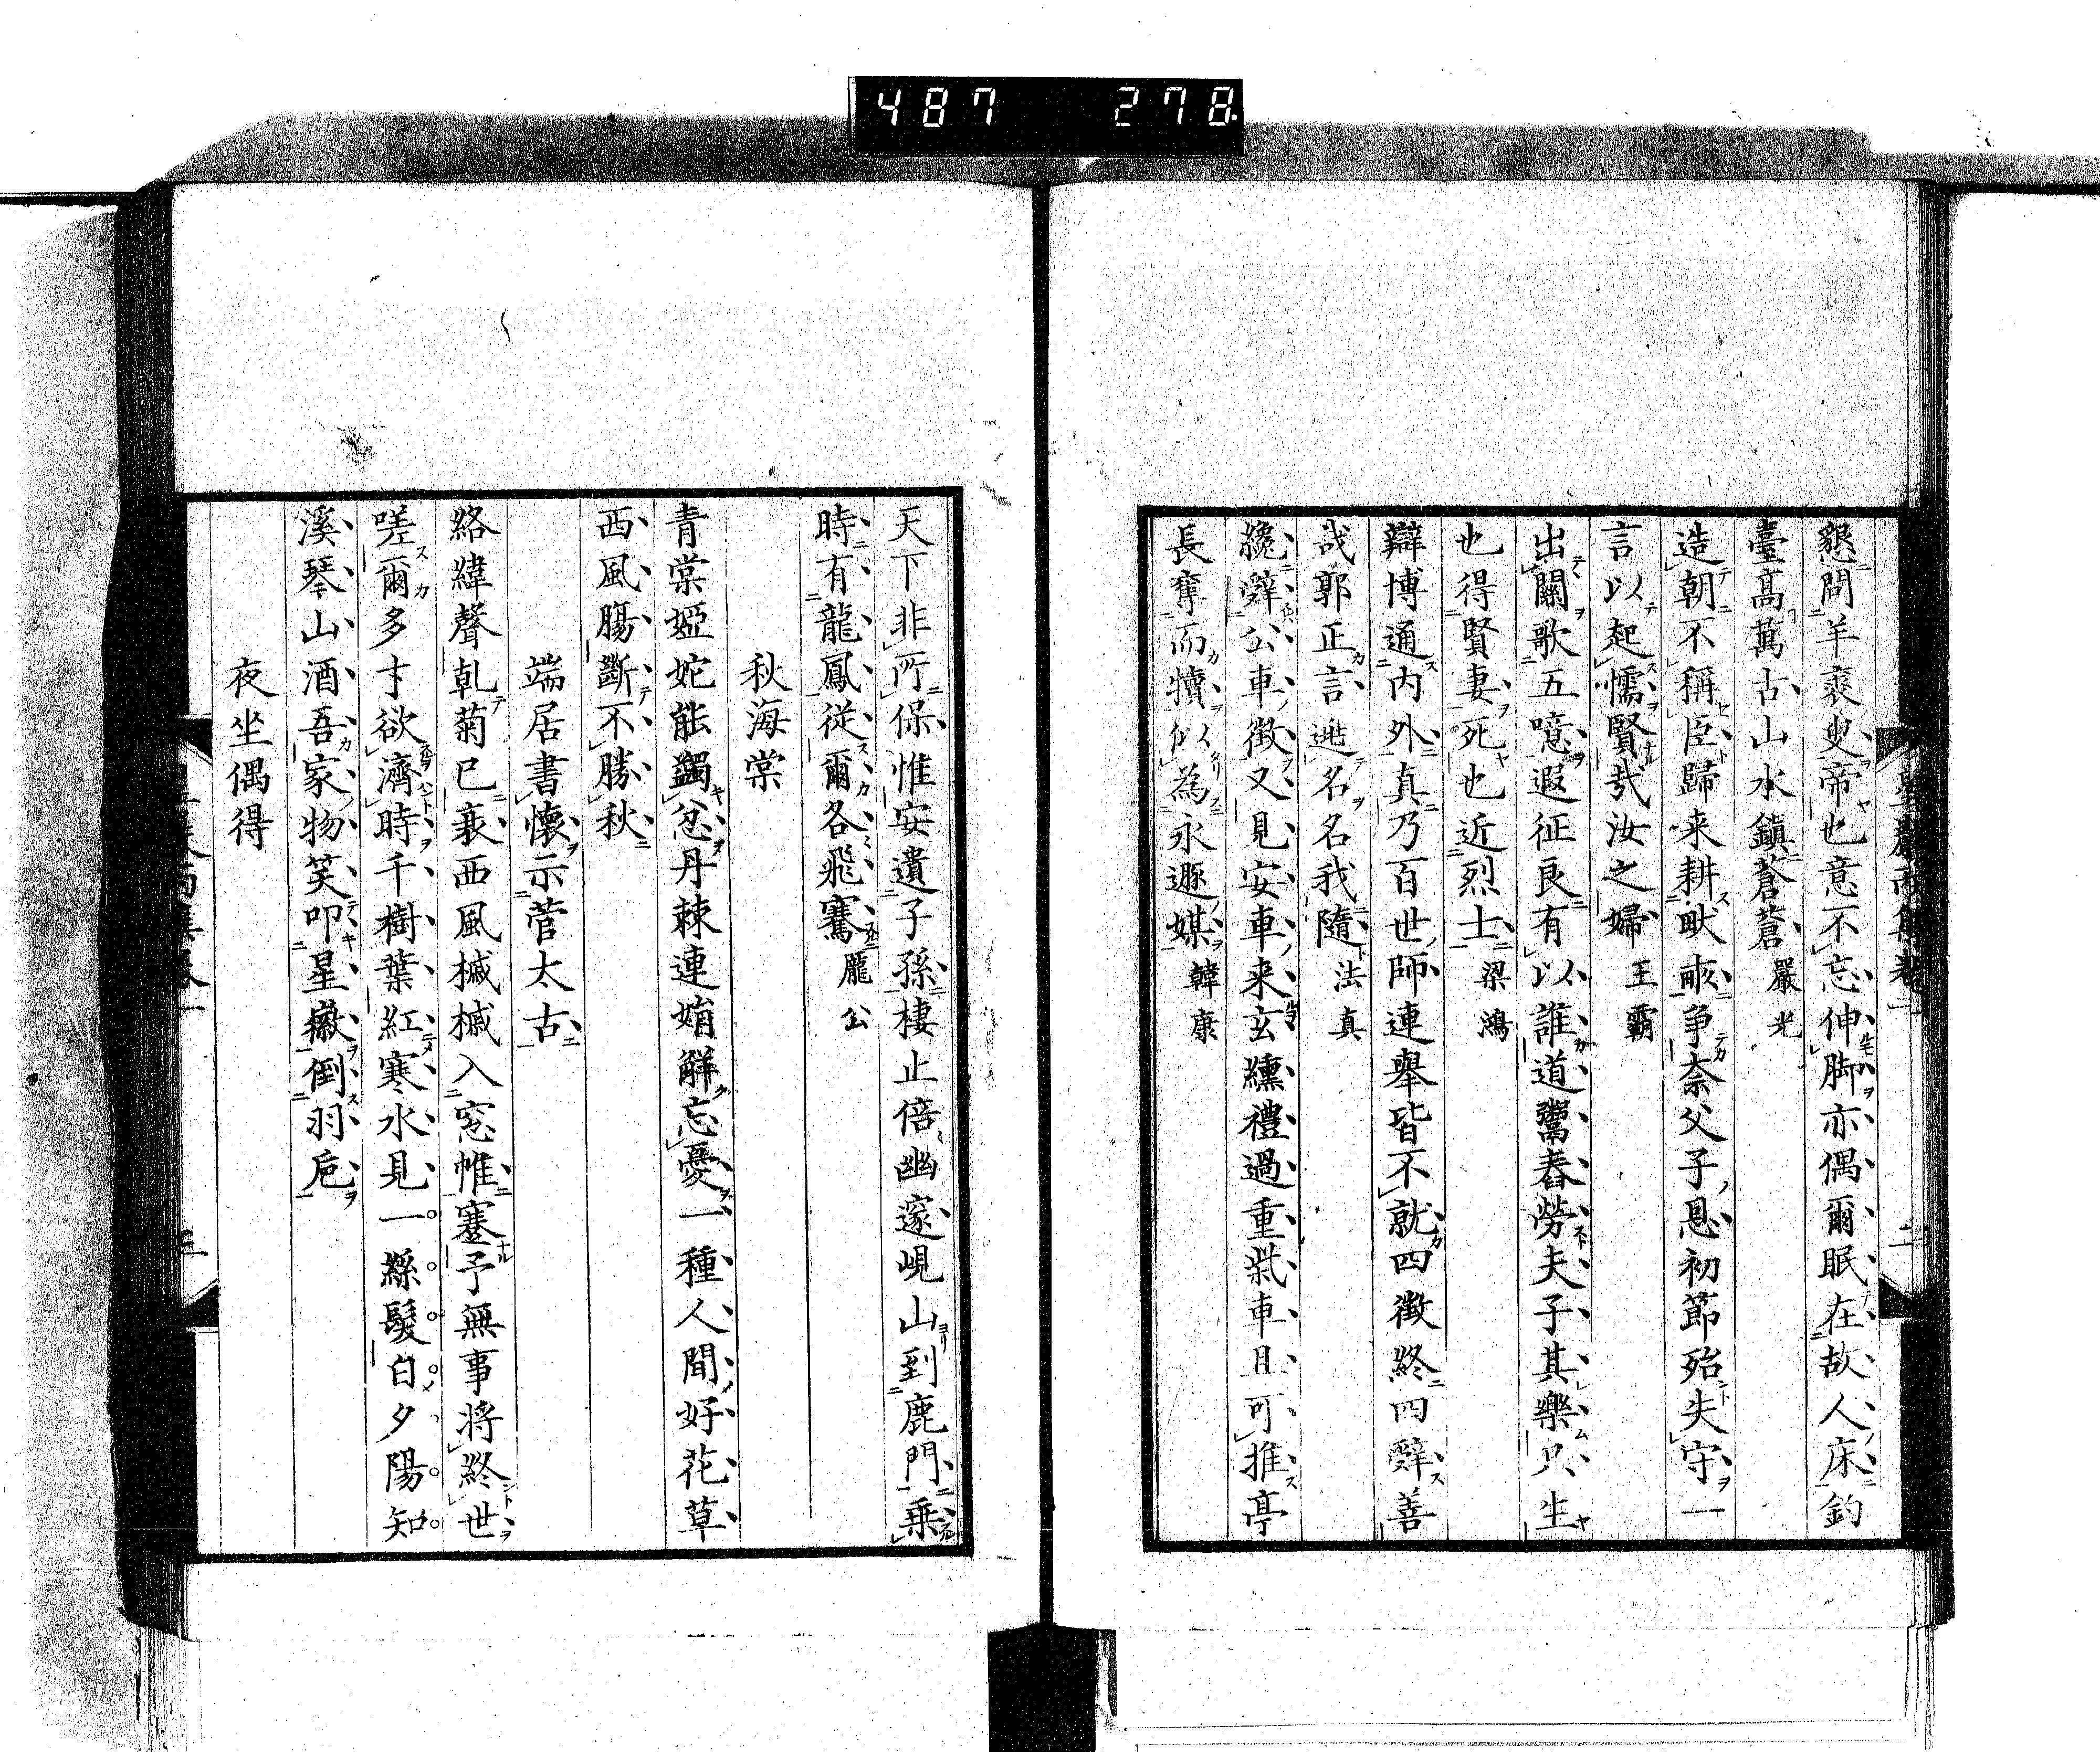 487 278
懇問羊裘叟帝也意不忘伸脚亦偶爾眠在故人床釣
臺高萬古山水鎖蒼蒼 嚴光
造朝不稱臣歸来耕畎畝争奈父子恩初節殆失守一
言以起懦賢哉汝之婦 王霸
出關歌五噫遐征良有以誰道鬻舂勞夫子其樂只生
也得賢妻死也近烈士 梁鴻
辯博通内外真乃百世師連舉皆不就四徴終四辭善
哉郭正言逃名名我隨 法真
纔辭公車徴又見安車来玄纁禮過重柴車且可推亭
長奪而犢以為永遯媒 韓康
天下非所保惟安遺子孫棲止倍幽邃峴山到鹿門乗
時有龍鳳從爾各飛騫 龐公
秋海棠
青棠婭姹能蠲忿丹棘連娟解忘憂一種人間好花草
西風腸斷不勝秋
端居書懷示菅太古
絡緯聲乹菊已衰西風槭槭入窓帷蹇予無事将終世
嗟爾多才欲濟時千樹葉紅寒水見一絲髮白夕陽知
溪琴山酒吾家物笑叩星徽倒羽巵
夜坐偶得